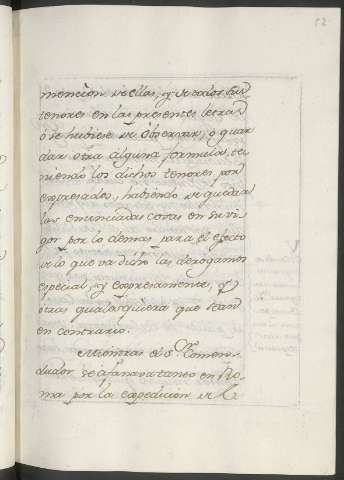 52
mencion de ellas, y de todos sus
tenores en las presentes letras
ó se hubiese de observar, o guar
dar otra alguna formula, te
niendo los dichos tenores por
expresados, habiendo de quedar
las enunciadas cosas en su vi
gor por lo demas para el efecto
de lo que va dicho las derogamos
especial, y expresamente, y
otras qualesquiera que sean
en contrario.
Mientras el Sr. Comen
dador se afanava tanto en Ro
ma por la expedicion de